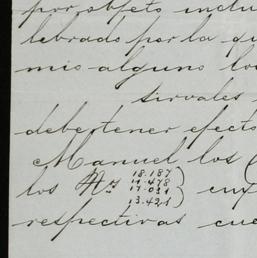 por objeto inclu
lebrado por la qu
mio alguno los
sirvales
deber tener efecto
Manuel los (
los Nos 18.187
17.031
13.421
respectivas cue